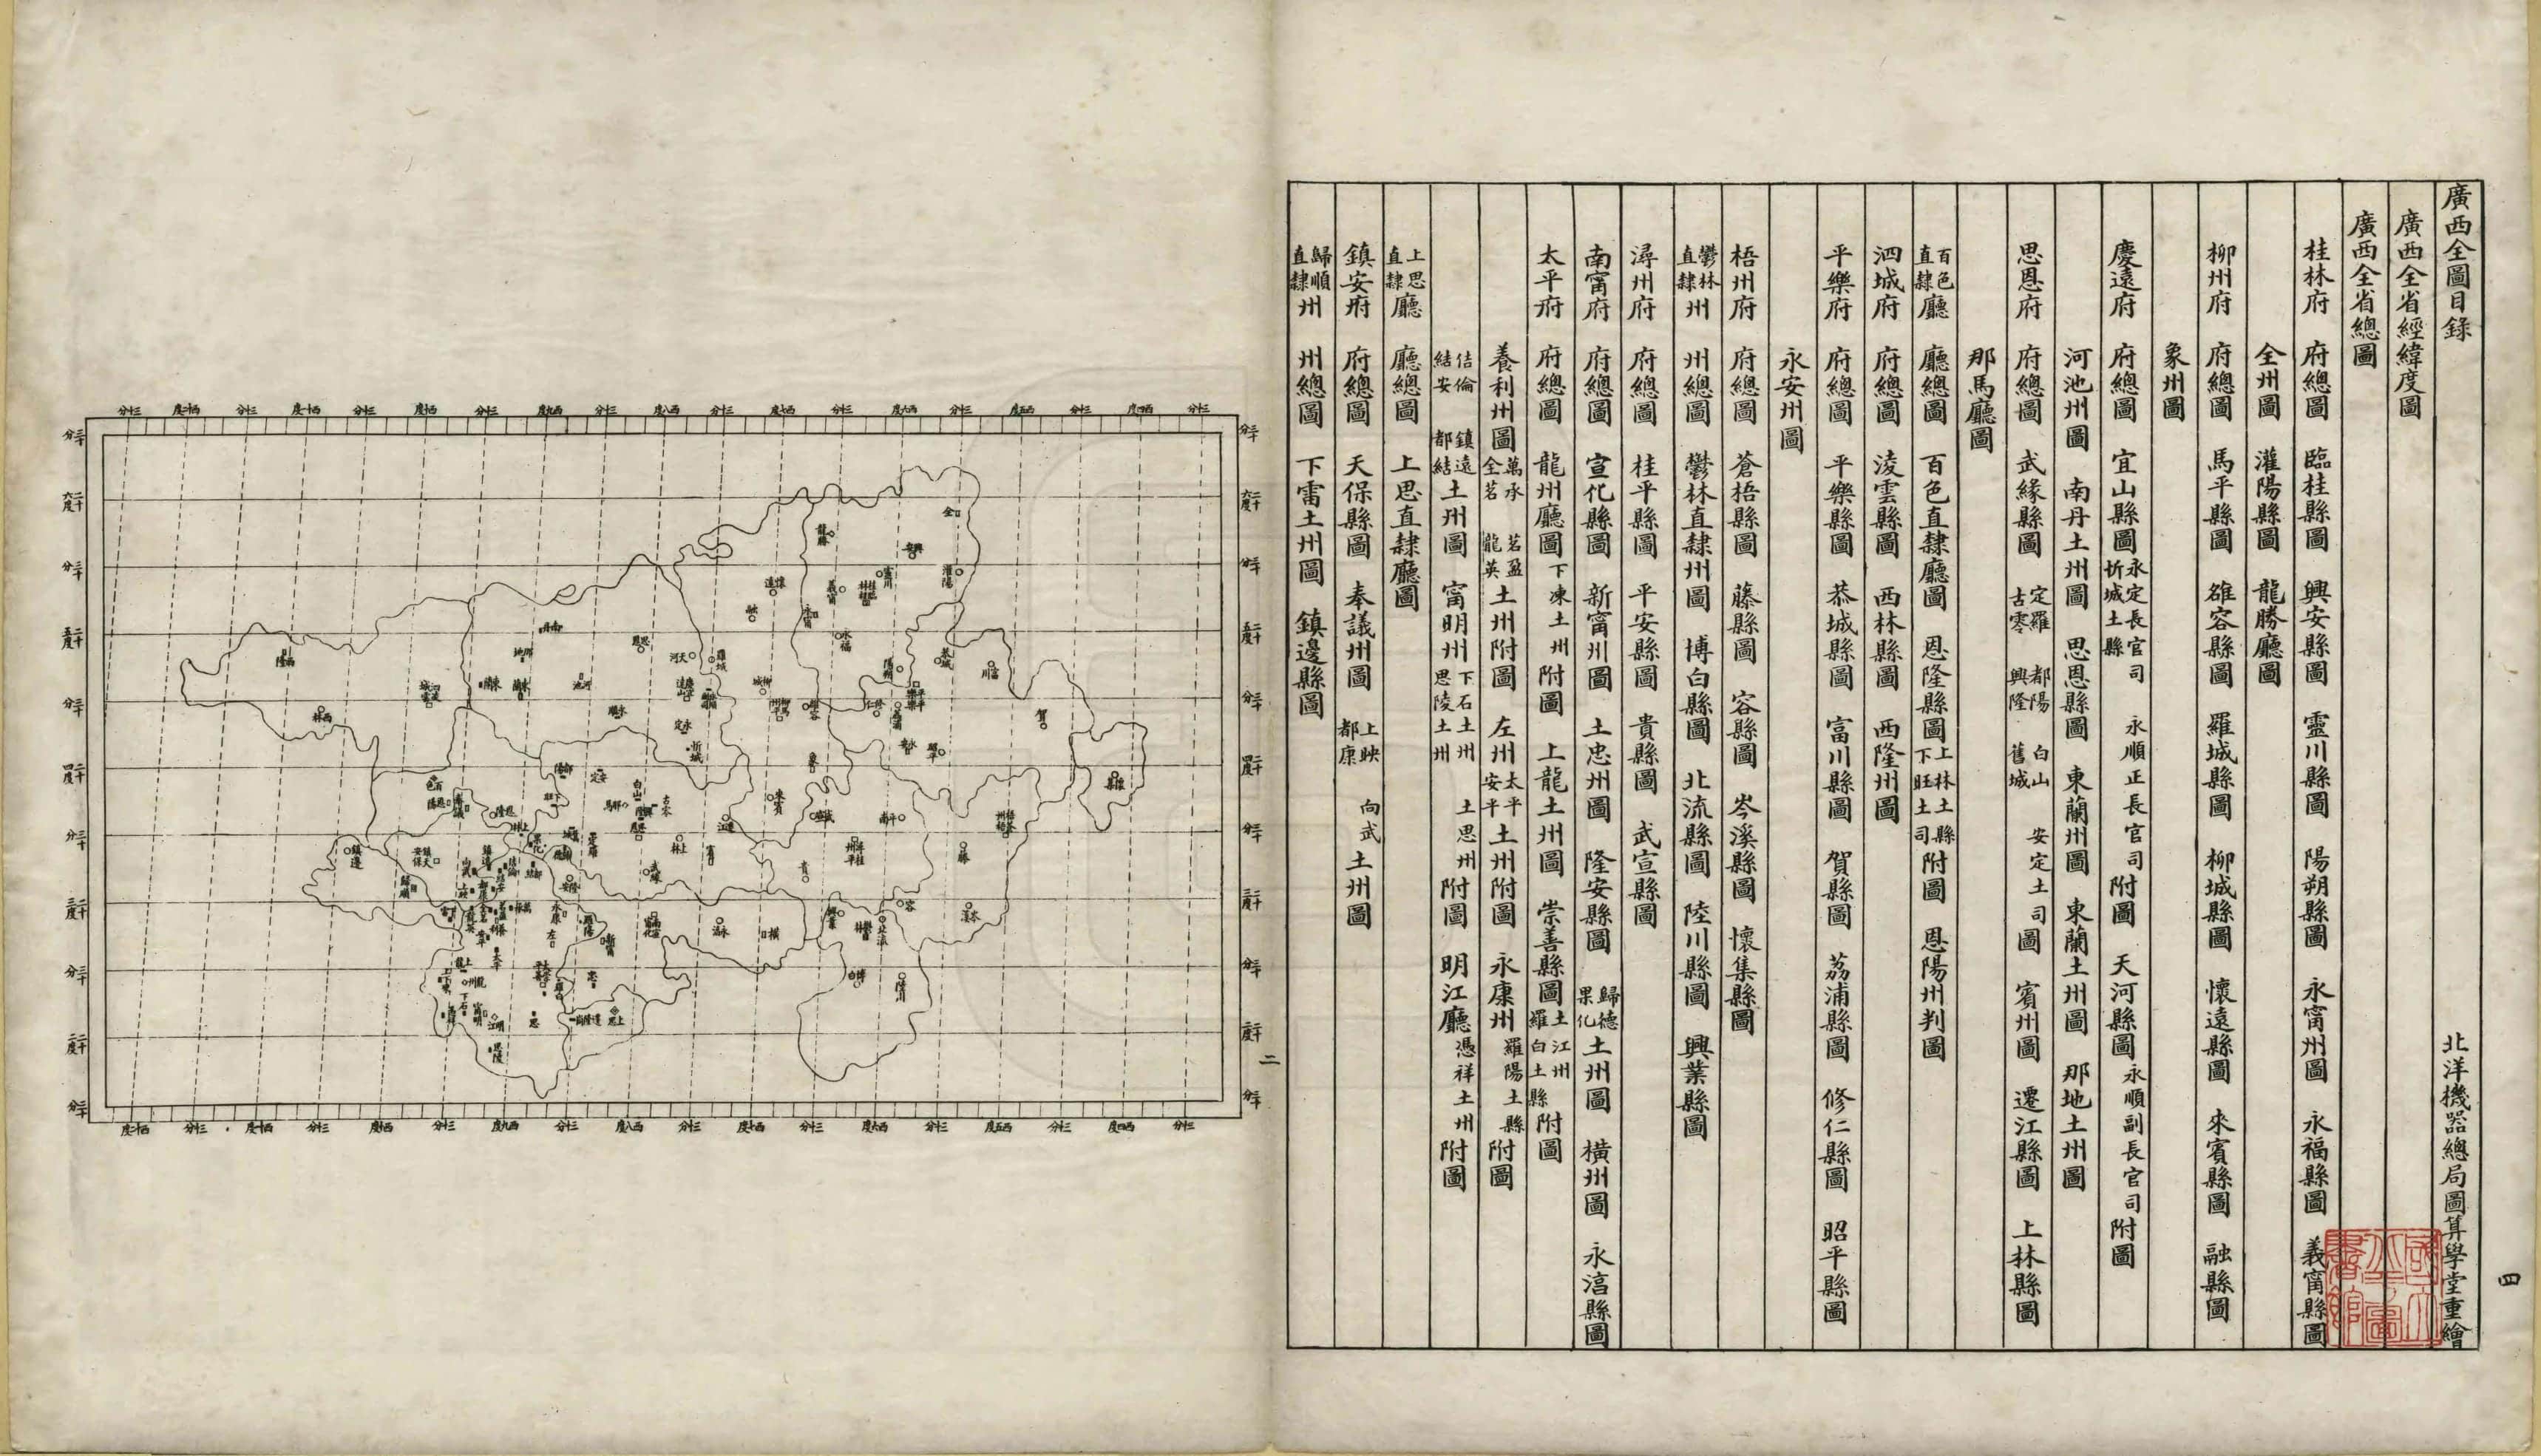 廣西全圖目錄 北洋機器總局圖算學堂重繪
廣西全省經緯度圖
廣西全省總圖
桂林府 府總圖 臨桂縣圖 興安縣圖 靈川縣圖 陽朔縣圖 永甯州圖 永福縣圖 義甯縣圖
全州圖 灌陽縣圖 龍勝廳圖
柳州府 府總圖 馬平縣圖 雒容縣圖 羅城縣圖 柳城縣圖 懷遠縣圖 來賓縣圖 融縣圖
象州圖
慶遠府 府總圖 宜山縣圖 永定長官司 忻城土縣 永順正長官司附圖 天河縣圖 永順副長官司附圖
河池州圖 南丹土州圖 思恩縣圖 東蘭州圖 東蘭土州圖 那地土州圖
思恩府 府總圖 武緣縣圖 定羅 古零 都陽 興隆 白山 舊城 安定土司圖 賓州圖 遷江縣圖 上林縣圖
那馬廳圖
百色直隸廳 廳總圖 百色直隸廳圖 恩隆縣圖 上林土縣 下旺土司附圖 恩陽州判圖
泗城府 府總圖 淩雲縣圖 西林縣圖 西隆州圖
平樂府 府總圖 平樂縣圖 恭城縣圖 富川縣圖 賀縣圖 荔浦縣圖 修仁縣圖 昭平縣圖
永安州圖
梧州府 府總圖 蒼梧縣圖 藤縣圖 容縣圖 岑溪縣圖 懷集縣圖
鬱林直隸州 州總圖 鬱林直隸州圖 博白縣圖 北流縣圖 陸川縣圖 興業縣圖
潯州府 府總圖 桂平縣圖 平安縣圖 貴縣圖 武宣縣圖
南甯府 府總圖 宣化縣圖 新甯州圖 土忠州圖 隆安縣圖 歸德 果化土州圖 橫州圖 永淳縣圖
太平府 府總圖 龍州廳圖 下凍土州附圖 上龍土州圖 崇善縣圖 土江州 羅白土縣附圖
養利州圖 萬承 全茗 茗盈 龍英土州附圖 左州 太平 安平土州附圖 永康州 羅陽土縣附圖
佶倫 結安 鎮遠 都結土州圖 甯明州 下石土州 思陵土州 土思州附圖 明江廳 憑祥土州附圖
上思直隸廳 廳總圖 上思直隸廳圖
鎮安府 府總圖 天保縣圖 奉議州圖 上映 都康 向武土州圖
歸順直隸州 州總圖 下雷土州圖 鎮邊縣圖
四
二
全
龍勝
興安
灌陽
靈川
義甯
懷遠
融
永甯
永福
恭城
富川
賀
陽朔
修仁
昭平
永安
懷集
羅城
天河
思恩
南丹
那地
東蘭
河池
永順
永定
忻城
柳城
象
來賓
遷江
武宣
平南
藤
容
岑溪
貴
北流
陸川
博白
興業
橫
永淳
賓
上林
武緣
白山
古零
定羅
安定
都陽
西隆
西林
百色
鎮邊
歸順
隆安
永康
左
羅陽
新甯
忠
上思
思陵
明江
甯明
下石
龍州
上龍
太平